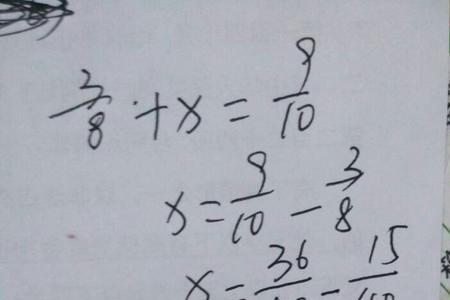 3/8 + x = 9/10
x = 9/10 - 3/8
x = 36/ - 15/